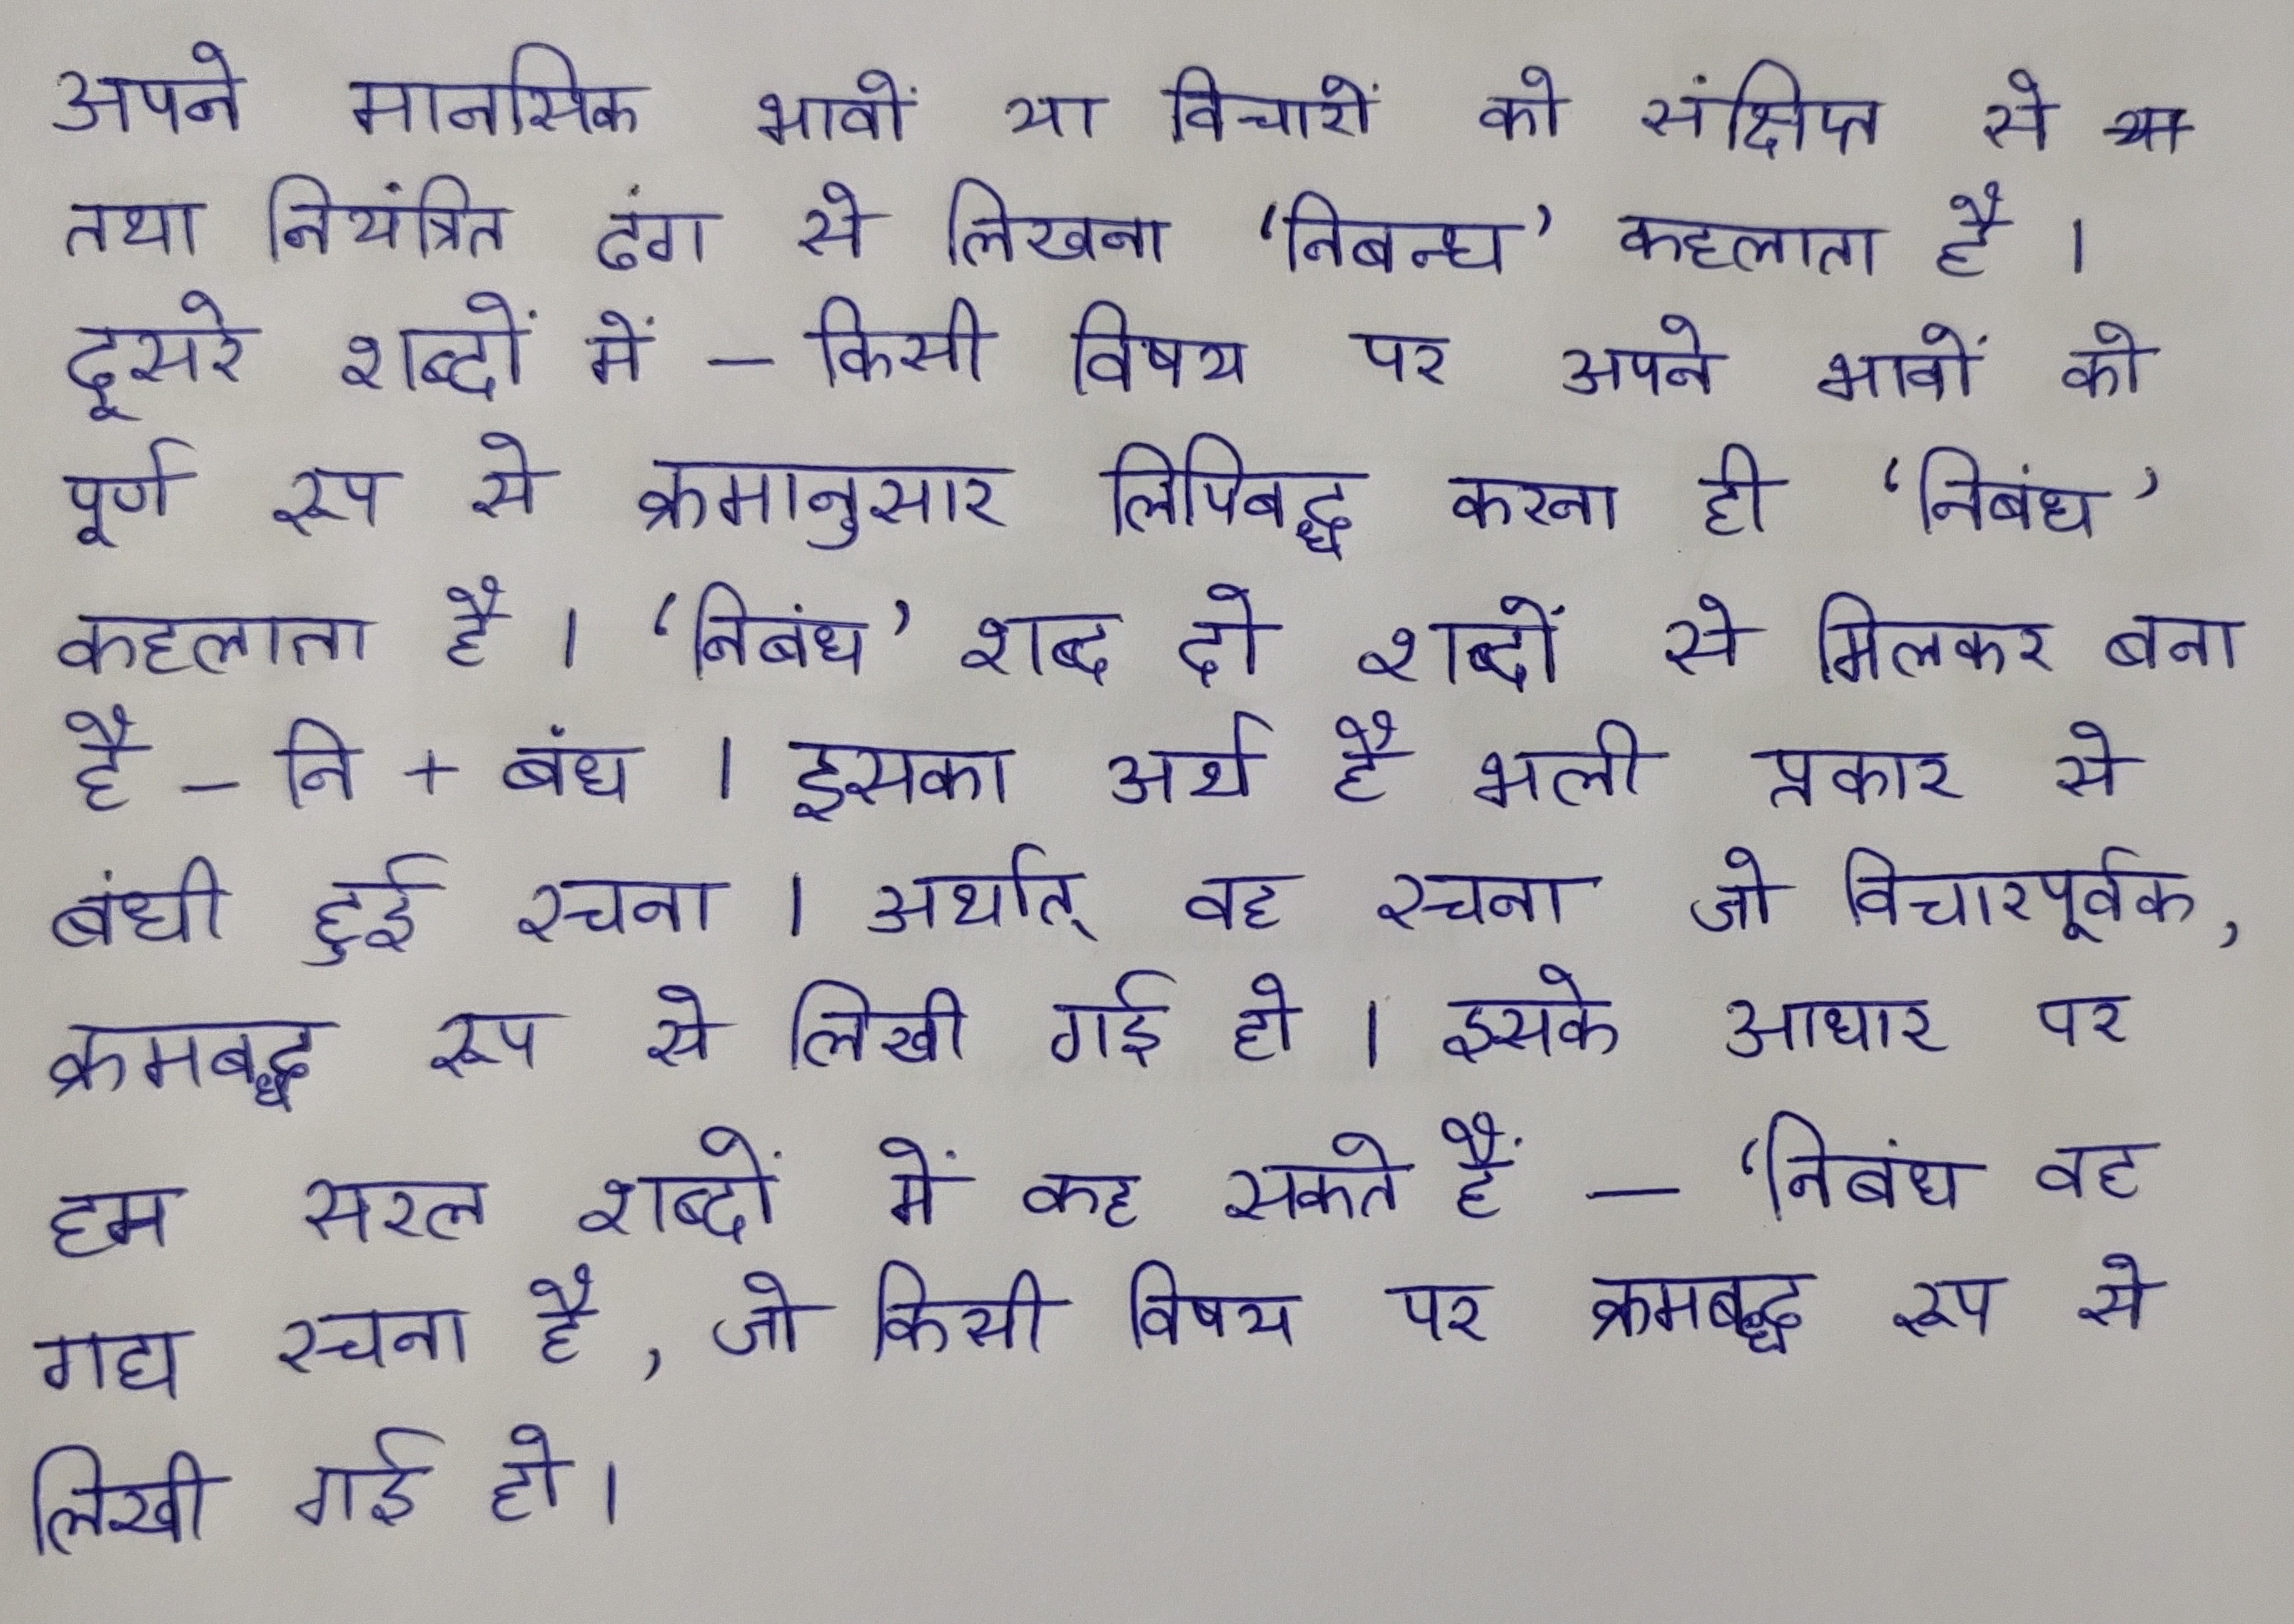 अपने मानसिक भावों या विचारों को संक्षिप्त से
तथा नियंत्रित ढंग से लिखना ‘निबन्ध’ कहलाता है ।
दूसरे शब्दों में – किसी विषय पर अपने भावों को
पूर्ण रूप से क्रमानुसार लिपिबद्ध करना ही ‘निबंध’
कहलाता है । ‘निबंध’ शब्द दो शब्दों से मिलकर बना
है – नि + बंध । इसका अर्थ है भली प्रकार से
बंधी हुई रचना । अर्थात् वह रचना जो विचारपूर्वक,
क्रमबद्ध रूप से लिखी गई हो । इसके आधार पर
हम सरल शब्दों में कह सकते हैं – ‘निबंध वह
गद्य रचना है, जो किसी विषय पर क्रमबद्ध रूप से
लिखी गई हो।